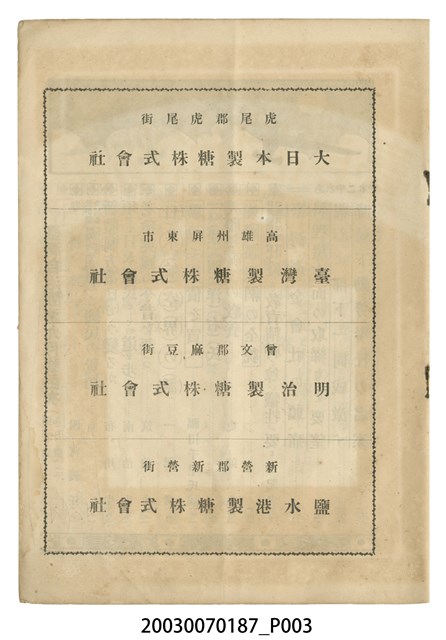 虎尾郡虎尾街
大日本製糖株式會社
高雄州屏東市
臺灣製糖株式會社
曾文郡麻豆街
明治製糖株式會社
新營郡新營街
鹽水港製糖株式會社
20030070187_P003